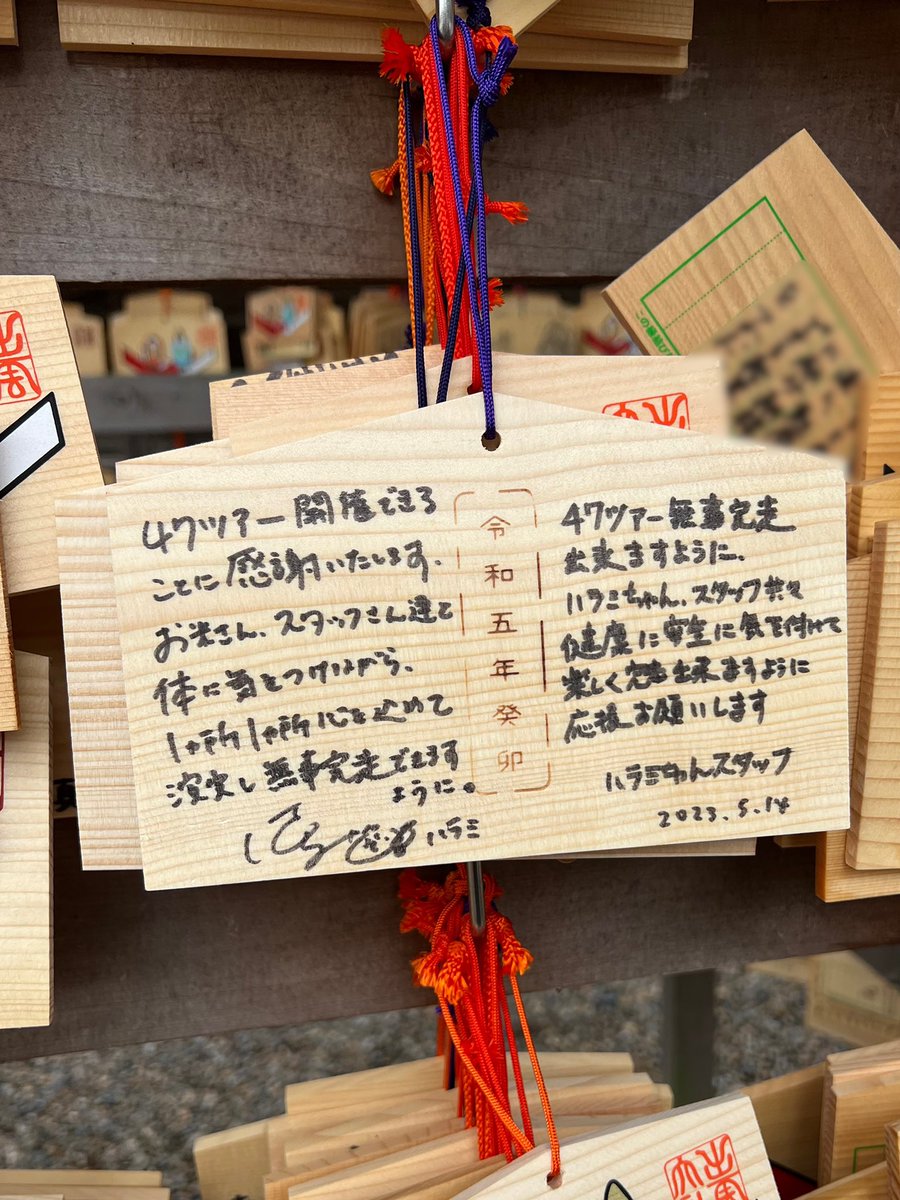 47ツアー開催できる
ことに感謝いたします。
お米さん、スタッフさん達と
体に気をつけながら、
1ヶ所1ヶ所心を込めて
演奏し無事完走できます
ように。
ハラミ
令和五年癸卯
47ツアー無事完走
出来ますように、
ハラミちゃん、スタッフ共々
健康に安全に気を付けて
楽しく完走出来ますように
応援お願いします
ハラミちゃんスタッフ
2023.5.14